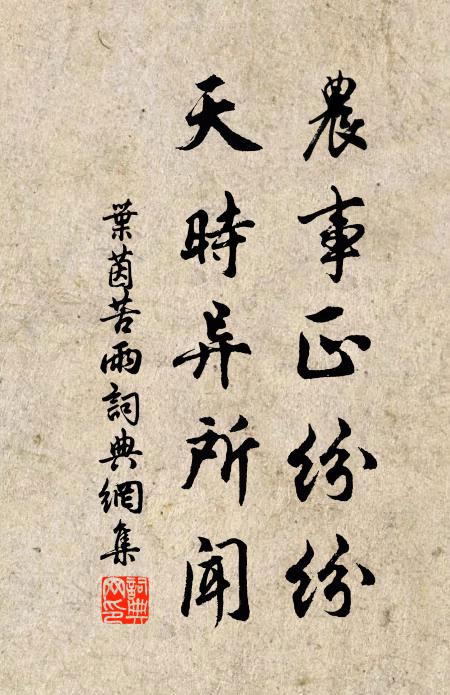 農事正紛紛
天時异所聞
葉茵苦雨詞典網集
詞典網印